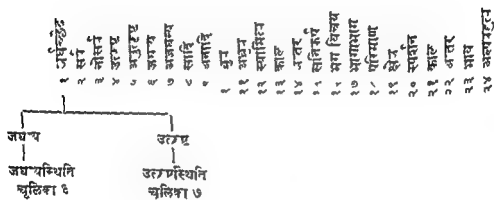 १ अर्धच्छेद
२ सर्व
३ नोसर्व
४ उत्कृष्ट
५ अनुत्कृष्ट
६ जघन्य
७ अजघन्य
८ सादि
९ अनादि
ध्रुव
११ अध्रुव
१२ स्वामित्व
१३ काल
१४ अन्तर
१५ सन्निकर्ष
१६ भग विचय
१७ भागाभाग
१८ परिमाण
१९ क्षेत्र
२० स्पर्शन
२१ काल
२२ अन्तर
२३ भाव
२४ अल्पबहुत्व
जघन्य
उत्कृष्ट
जघन्यस्थिति
चूलिका ६
उत्कृष्टस्थिति
चूलिका ७